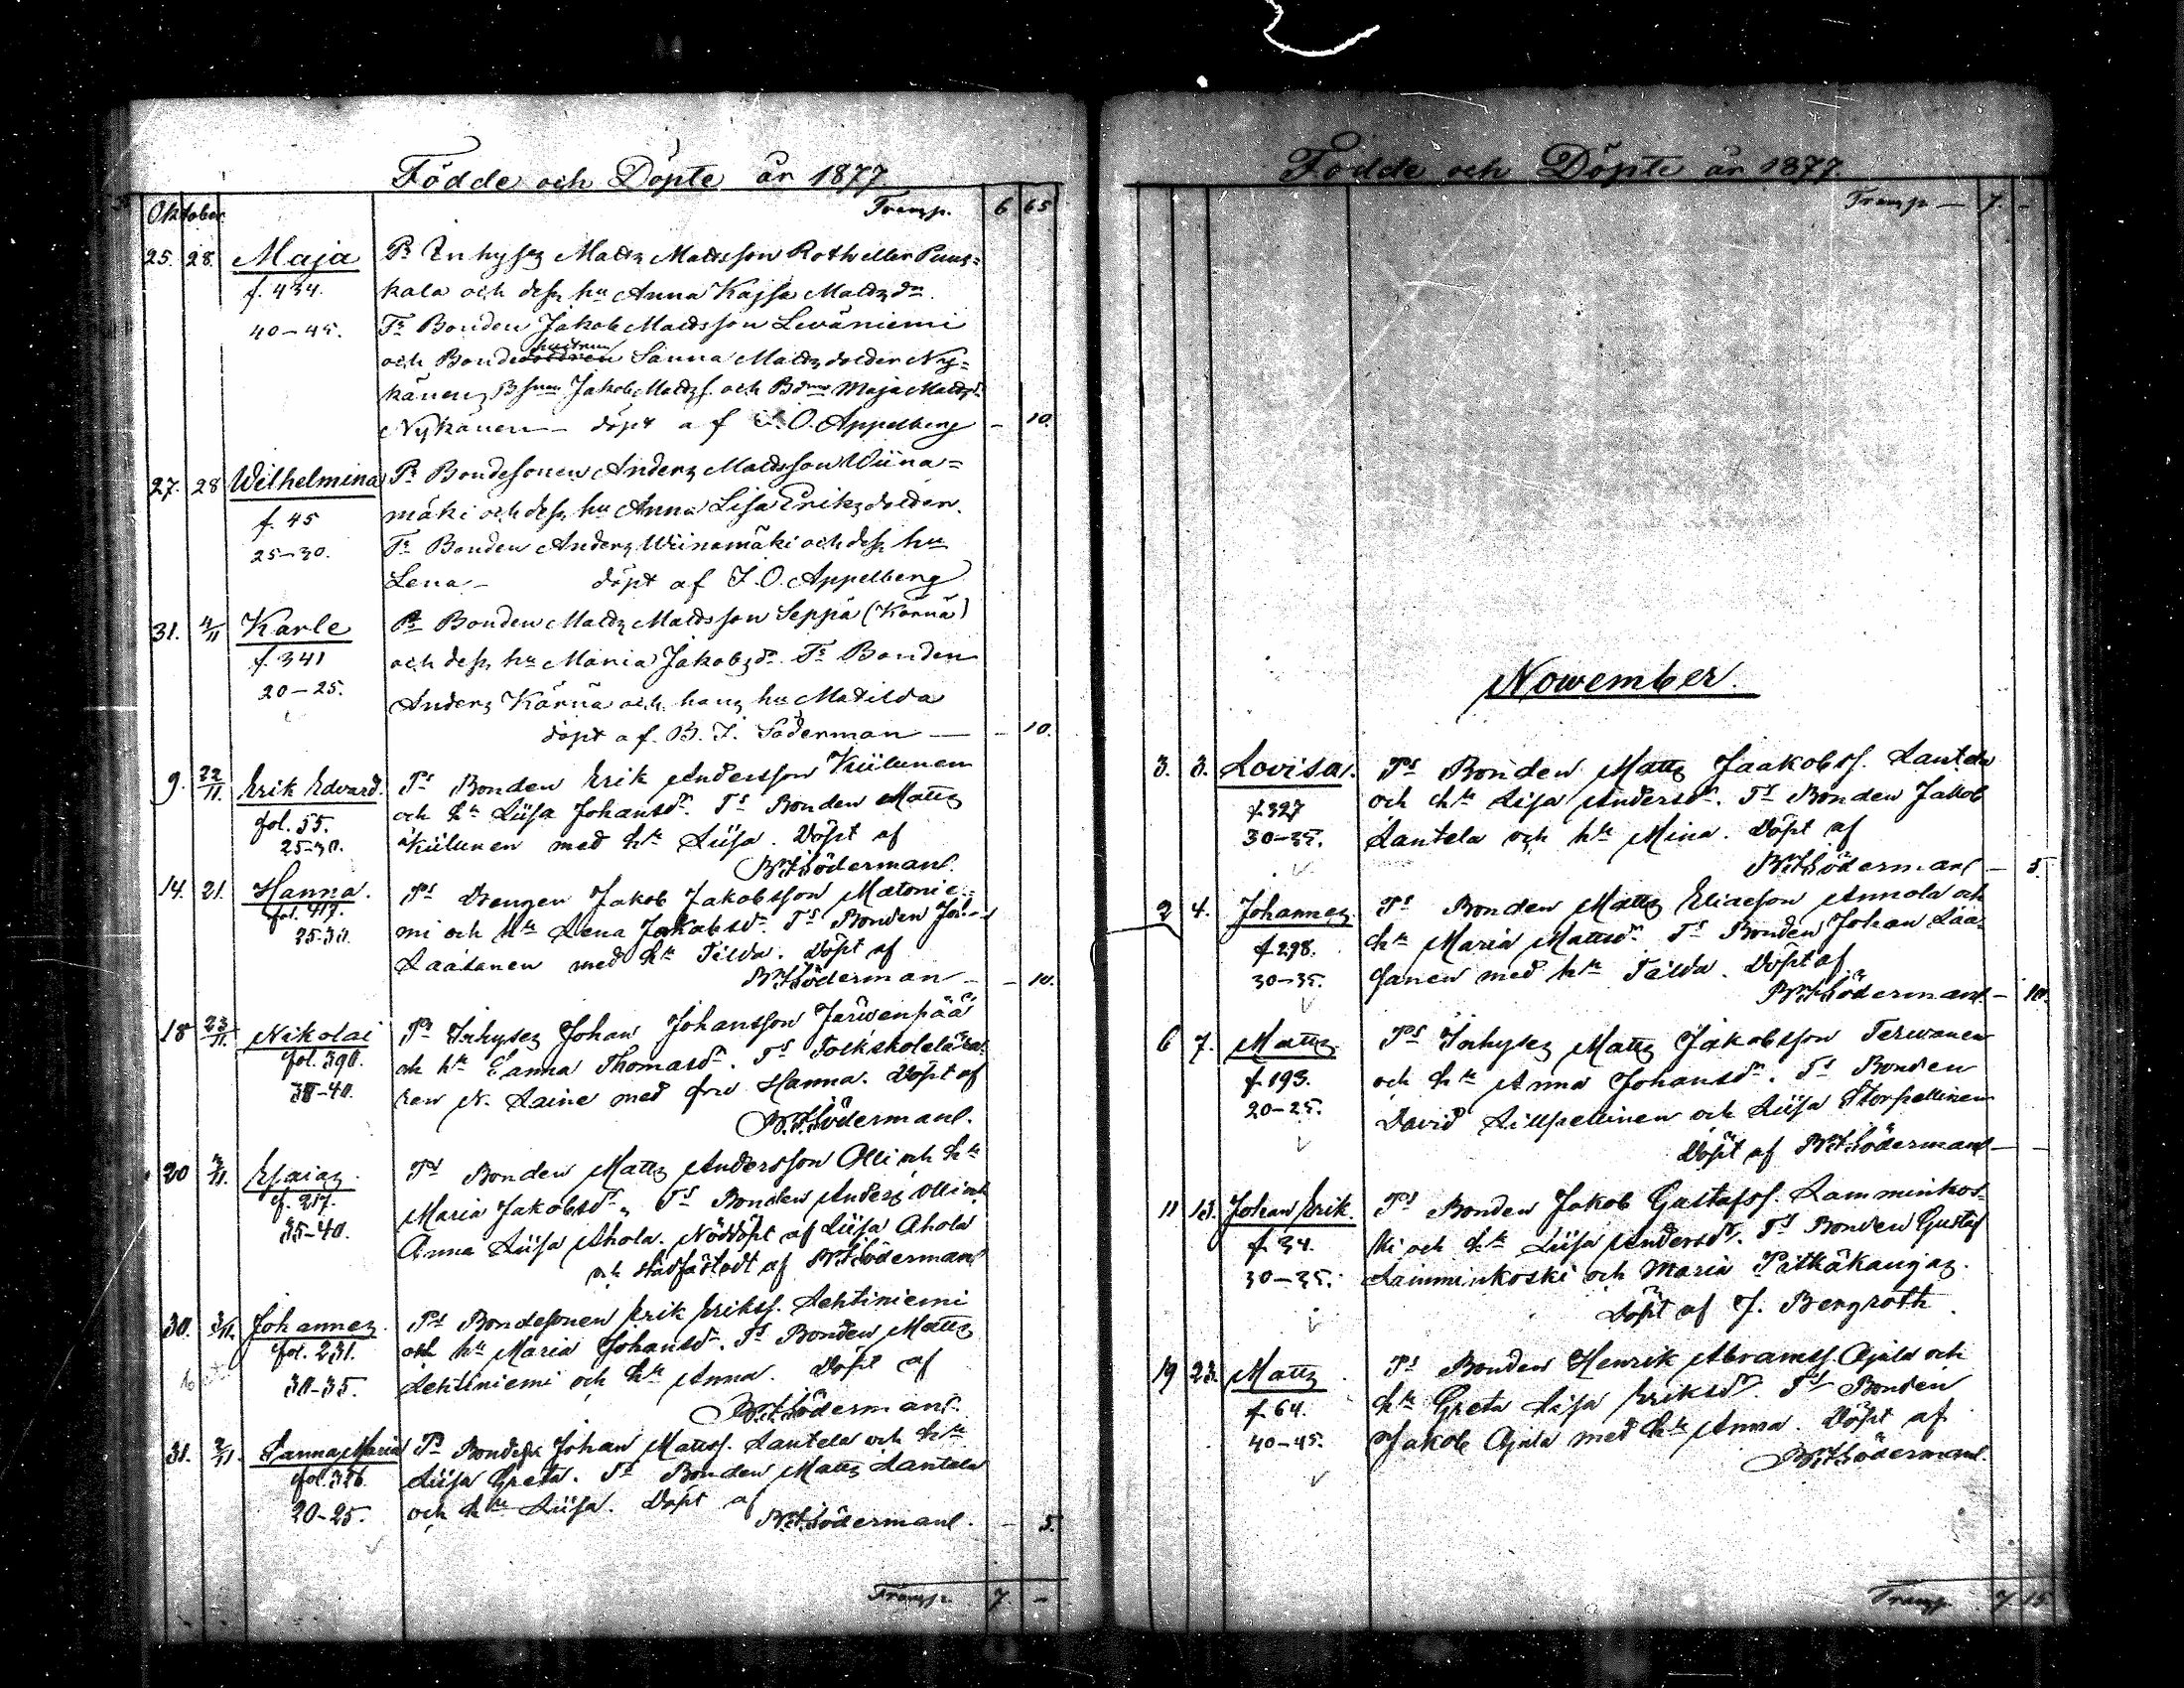 Födde och Döpte år 1877.
Oktober Transp. 6 65
25. 28. Maja Pr Inhyses Matts Mattsson Roth eller Puus=
f. 434. kala och dess hu Anna Kajsa Mattsdr.
40-45. Fr Bonden Jakob Mattsson Leväniemi
och Bondehustrun Sanna Matts dotter Ny=
känen, Bsnen Jakob Mattss. och Bdnen Maja Mattsdr
Nykänen — döpt af J. O. Appelberg — 10.
27. 28 Wilhelmina Pr Bondesonen Anders Mattsson Wiina=
f. 45 mäki och dess hu Anna Lisa Eriks dotter.
25-30. Fr Bonden Anders Wiinamäki och dess hu
Lena — döpt af J. O. Appelberg
31. 4/11 Karle Pr Bonden Matts Mattsson Seppä (Kärnä)
f. 341 och dess hu Maria Jakobsdr. Fr Bonden
20-25. Anders Kärnä och hans hu Matilda
döpt af B. J. Söderman — — 10.
9. 22/11. Erik Edvard. Prs Bonden Erik Andersson Kiilunen
fol. 55. och hu Liisa Johansdr. Frs Bonden Matts
25-30. Kiilunen med hu Liisa. Döpt af
B. J. Söderman.
14. 21. Hanna. Prs Drengen Jakob Jakobsson Matonie=
fol. 417. mi och hu Lena Jakobsdr. Frs Bonden
25-30. Laasanen med hu Tilda. Döpt af
B. J. Söderman — — 10.
18 23/11. Nikolai Prs Inhyses Johan Johansson Järwenpää
fol. 390. och hu Sanna Thomasdr. Frs Folkskolelära=
ren N. Laine med fru Hanna. Döpt af
B. J. Söderman.
20 Esaias. Prs Bonden Matts Andersson Olli och hu
f. 217. Maria Jakobsdr. Frs Bonden Anders Olli och
35-40. Anna Liisa Ahola. Nöddöpt af Liisa Ahola
och stadfästadt af B. J. Söderman
30. Johannes. Prs Bondesonen Erik Erikss. Lehtiniemi
fol. 231. och hu Maria Johansdr. Frs Bonden Matts
30-35. Lehtiniemi och hu Anna. Döpt af
B. J. Söderman.
31. Sanna Maria Prs Johan Mattss. Lantela och hu
Liisa Greta. Frs Bonden Matts Lantela
20-25. och hu Liisa. Döpt af
B. J. Söderman. — 5.
Transp. 7. —
Födde och Döpte år 1877.
Transp — 7. —
Nowember.
3. 3. Lovisa. Prs Bonden Matts Jaakobss. Lantela
f. 327 och hu Lisa Andersdr. Frs Bonden Jakob
30-35. Lantela och hu Mina. Döpt af
B. J. Söderman — 5.
2 4. Johannes. Prs Bonden Matts Eliasson Annola och
f. 298. hu Maria Mattsdr. Frs Bonden Johan Laa=
30-35. sanen med hu Tilda. Döpt af
B. J. Söderman — 10.
6 7. Matts. Prs Inhyses Matts Jakobsson Terwanen
f. 193. och hu Anna Johansdr. Frs Bonden
20-25. David Lillpellinen och Liisa Storpellinen
Döpt af B. J. Söderman — —
11 13. Johan Erik. Prs Bonden Jakob Gustafss. Lamminkos=
f. 34. ki och hu Liisa Andersdr. Frs Bonden Gustaf
30-35. Lamminkoski och Maria Pitkäkangas.
Döpt af J. Bergroth.
19 23. Matts. Prs Bonden Henrik Abramss. Ojala och
f. 64. hu Greta Lisa Eriksdr. Frs Bonden
40-45. Jakob Ojala med hu Anna. Döpt af
B. J. Söderman.
Transp. 7 15